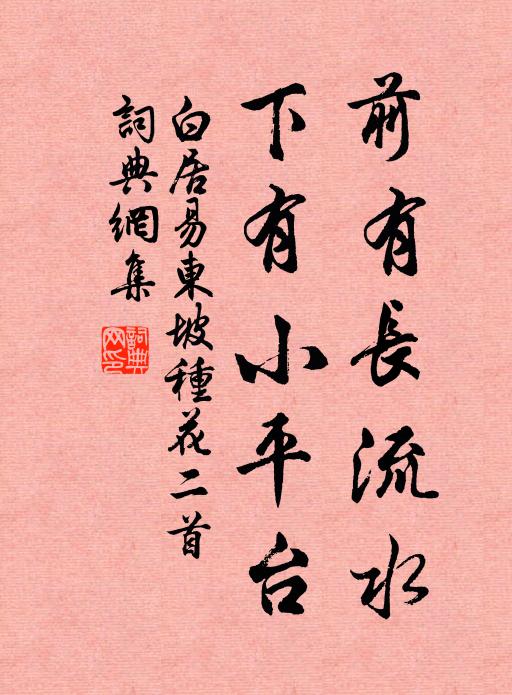 前有長流水
下有小平台
白居易東坡種花二首
詞典網集
詞典
网印